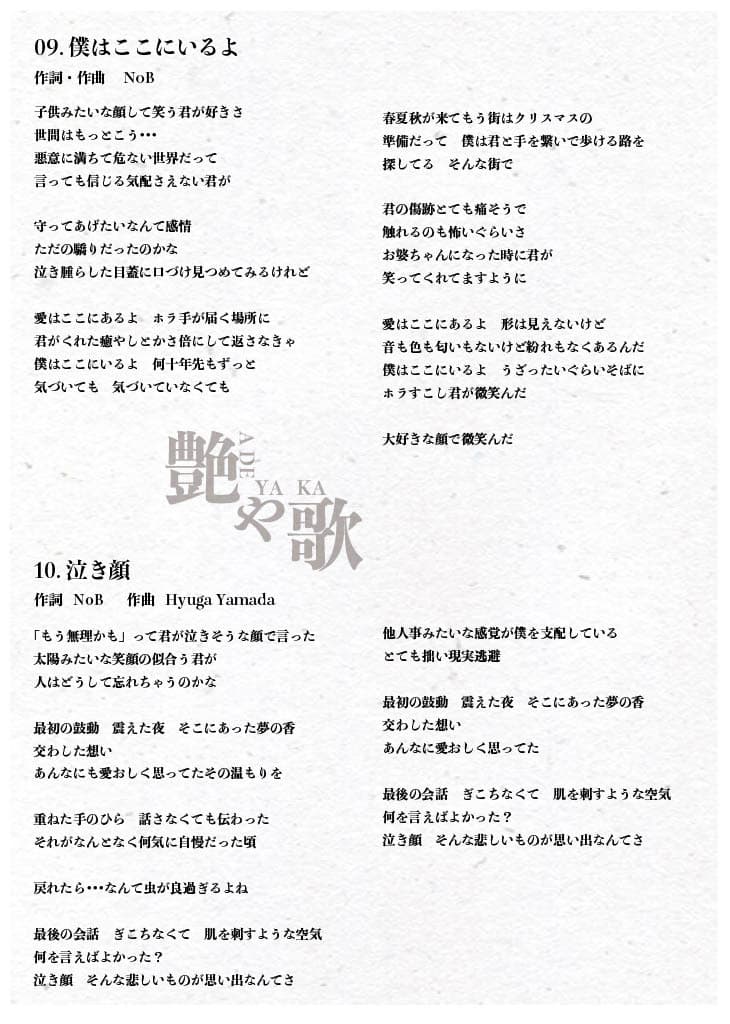 09. 僕はここにいるよ
作詞・作曲　NoB
子供みたいな顔して笑う君が好きさ
世間はもっとこう･･･
悪意に満ちて危ない世界だって
言っても信じる気配さえない君が
守ってあげたいなんて感情
ただの驕りだったのかな
泣き腫らした目蓋に口づけ見つめてみるけれど
愛はここにあるよ　ホラ手が届く場所に
君がくれた癒やしとかさ倍にして返さなきゃ
僕はここにいるよ　何十年先もずっと
気づいても　気づいていなくても
春夏秋が来てもう街はクリスマスの
準備だって　僕は君と手を繋いで歩ける路を
探してる　そんな街で
君の傷跡とても痛そうで
触れるのも怖いぐらいさ
お婆ちゃんになった時に君が
笑ってくれてますように
愛はここにあるよ　形は見えないけど
音も色も匂いもないけど紛れもなくあるんだ
僕はここにいるよ　うざったいぐらいそばに
ホラすこし君が微笑んだ
大好きな顔で微笑んだ
艶や歌
ADE YA KA
10. 泣き顔
作詞　NoB　　作曲　Hyuga Yamada
「もう無理かも」って君が泣きそうな顔で言った
太陽みたいな笑顔の似合う君が
人はどうして忘れちゃうのかな
最初の鼓動　震えた夜　そこにあった夢の香
交わした想い
あんなにも愛おしく思ってたその温もりを
重ねた手のひら　話さなくても伝わった
それがなんとなく何気に自慢だった頃
戻れたら･･･なんて虫が良過ぎるよね
最後の会話　ぎこちなくて　肌を刺すような空気
何を言えばよかった？
泣き顔　そんな悲しいものが思い出なんてさ
他人事みたいな感覚が僕を支配している
とても拙い現実逃避
最初の鼓動　震えた夜　そこにあった夢の香
交わした想い
あんなに愛おしく思ってた
最後の会話　ぎこちなくて　肌を刺すような空気
何を言えばよかった？
泣き顔　そんな悲しいものが思い出なんてさ